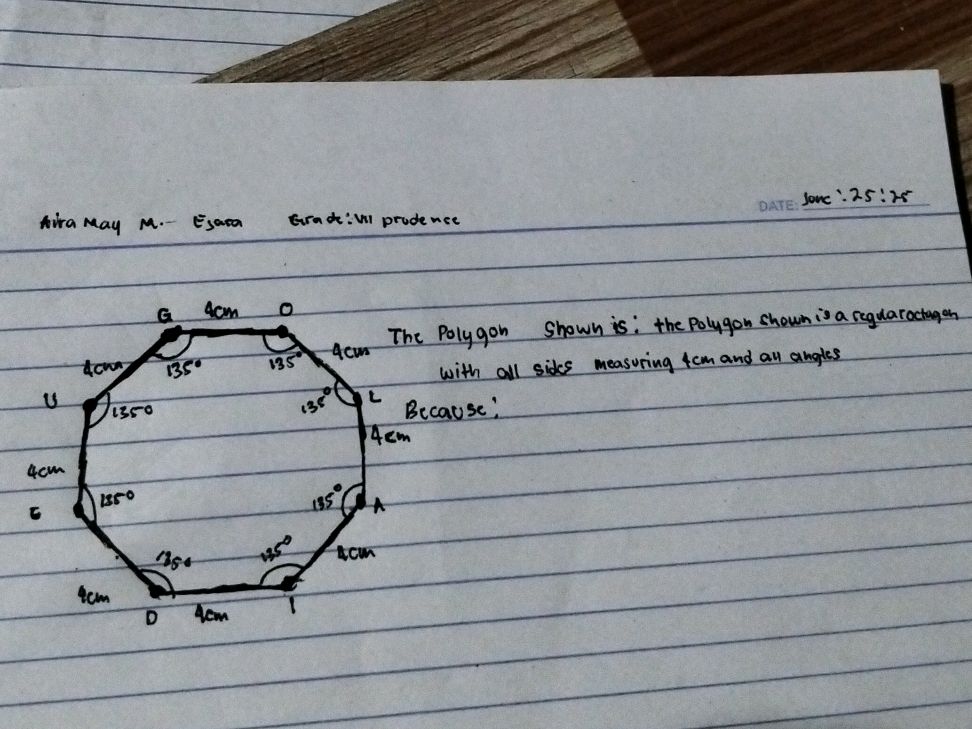 DATE: June : 25 : 25
Aira May M. Esara Grade: VII prudence
G 4cm O
4cm 135° 135° 4cm
U 135° 135° L
4cm 4cm
E 135° 135° A
135° 135°
4cm 4cm
D 4cm I
The Polygon Shown is: the Polygon shown is a regular octagon
with all sides measuring 4cm and all angles
Because: